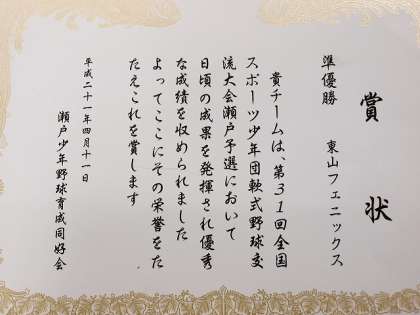 賞状
準優勝　東山フェニックス
貴チームは、第31回全国
スポーツ少年団軟式野球交
流大会瀬戸予選において
日頃の成果を発揮され優秀
な成績を収められました
よってここにその栄誉をた
たえこれを賞します
平成二十一年四月十一日
瀬戸少年野球育成同好会